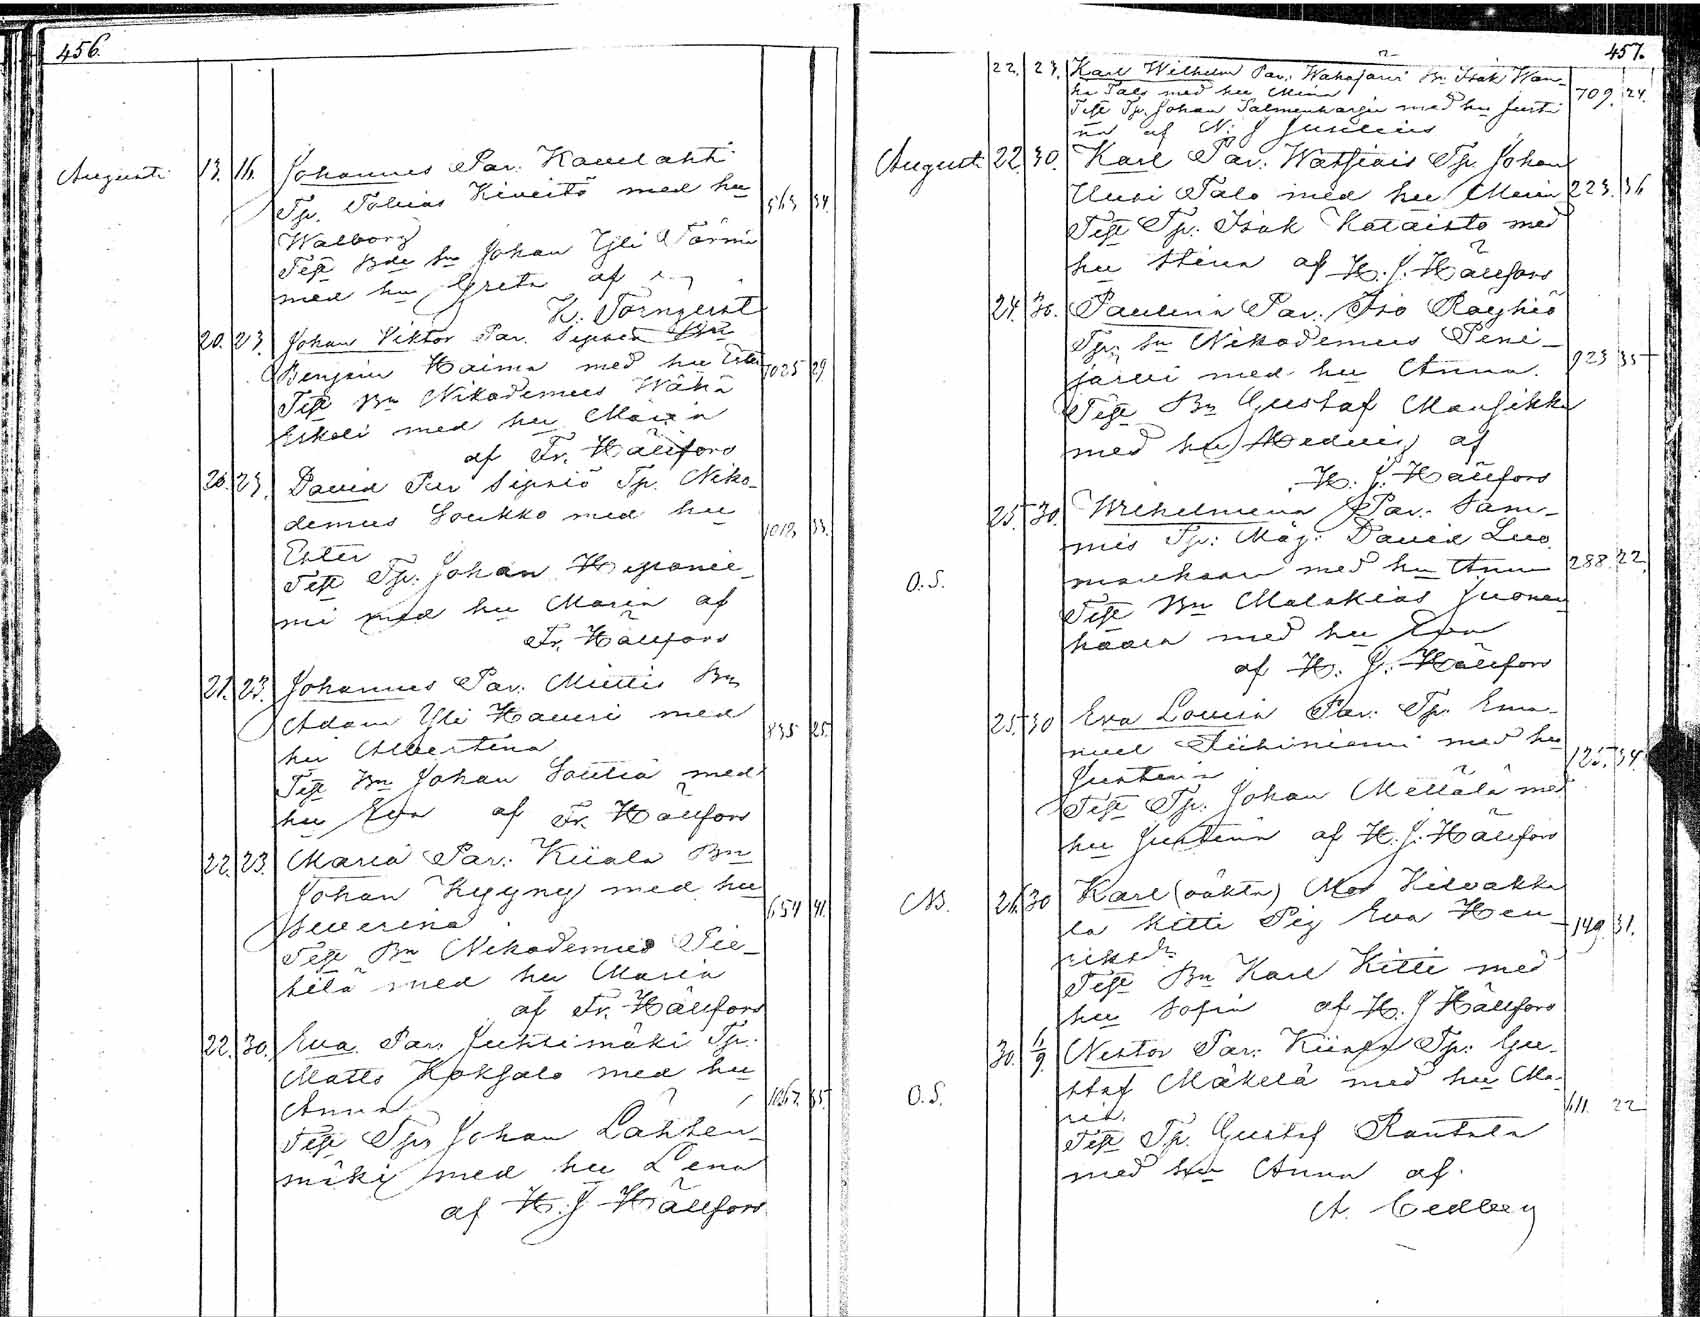 456.
Augusti 13. 16. Johannes Par: Kauelahti
Tp. Tobias Kiveitö med hu 563 34.
Walborg
Test Bde Sn Johan Yli Törmä
med hu Greta af
K. Törnqvist
20. 23. Johan Viktor Par.
Benjain Haima med hu Ester 1025 29
Test Bn Nikodemus Wähä
Eskoli med hu Maria
af Fr. Hällfors
20. 23. David Par Sipniö Tp. Niko-
demus Loukko med hu 1012 33.
Ester
Test Tp: Johan
mi med hu Maria af
Fr. Hällfors
21. 23. Johannes Par: Miettis Bn
Adam Yli Hauri med 835 25.
hu Albertina
Test Bn Johan med
hu Eva af Fr. Hällfors
22. 23. Maria Par: Kiiala Bn
Johan Kyyny med hu 654 41.
Severina
Test Bn Nikodemus Pie-
tilä med hu Maria
af Fr. Hällfors
22. 30. Eva. Par: Juhtimäki Tp.
Matts Koksalo med hu
Anna 1067. 35.
Test Tp Johan Lähten-
mäki med hu Lena
af H. J Hällfors
457.
22. 23. Karl Wilhelm Par: Wahajärvi Bn Isak Wan-
ha Talo med hu Mina 709. 24.
Test Tp. Johan Salmenharju med hu Justi
na af N: J Juselius
Augusti 22. 30. Karl Par: Watjiais Tp. Johan
Uusi Talo med hu Maria 223. 36
Test Tp: Isak Kataisto med
hu Stina af H. J. Hällfors
24. 30. Paulina Par: Iso Röyhiö
Tp: Sn Nikodemus Peni-
järvi med hu Anna. 923 35
Test Bn Gustaf Mansikka
med hu Hedvig af
H. J. Hällfors
25. 30. Wilhelmina Par: Sam-
mis Tp: Måg: David Luo
O.S. mankaar med hu Anna 288. 22.
Test Bn Malakias Juonen
hää med hu Eva
af H. J. Hällfors
25. 30 Eva Lovisa Par: Tp. Ema-
nuel Tiihiniemi med hu 125. 34.
Justina
Test Tp. Johan Mettälä med
hu Justina af H. J. Hällfors
NB. 26. 30 Karl (oäkta) Mod Kilvakka
la Kitti Pig Eva Hen- 149. 31.
riksdr
Test Bn Karl Kitti med
hu Sofia af H. J Hällfors
30. 1/9. Nestor Par: Tp: Gu-
O.S. staf Mäkelä med hu Ma-
ria. 611. 22
Test Tp. Gustaf Rantala
med hu Anna af.
A. Cedberg